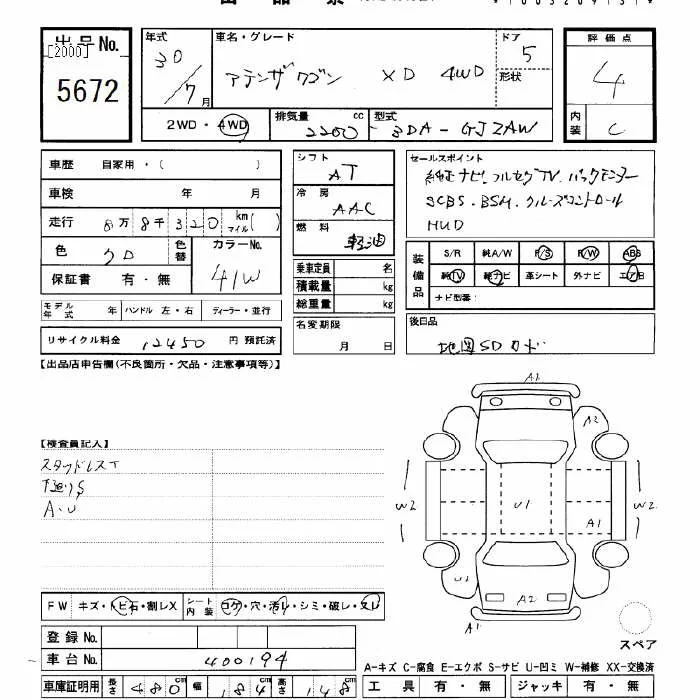 出品No.
[2000]
5672
年式
30/7月
車名・グレード
アテンザワゴン XD 4WD
ドア
5
形状
評価点
4
内装
C
2WD・4WD
排気量
2200 cc
型式
3DA-GJ2AW
車歴 自家用・( )
車検 年 月
走行 8万8千320 km マイル( )
色 クロ
色替
カラーNo.
41W
保証書 有・無
モデル年式 年 ハンドル 左・右 ディーラー・並行
リサイクル料金 12450 円 預託済
シフト
AT
冷房
AAC
燃料
軽油
乗車定員 名
積載量 kg
総重量 kg
名変期限
月 日
セールスポイント
純正ナビ.フルセグTV.バックモニター
SCBS.BSM.クルーズコントロール
HUD
装備品
S/R 純A/W P/S P/W ABS
純TV 純ナビ 革シート 外ナビ エアB
ナビ型番:
後日品
地図SDカード
【出品店申告欄(不良箇所・欠品・注意事項等)】
【検査員記入】
スタッドレスT
下廻りS
A・U
A1
A2
W2
U1
A1
W2
U1
A2
A1
スペア
FW キズ・トビ石・割レX
シート内装 コゲ・穴・汚レ・シミ・破レ・スレ
登録No.
車台No. 400194
車庫証明用 長さ 480cm 幅 184cm 高さ 148cm
A-キズ C-腐食 E-エクボ S-サビ U-凹ミ W-補修 XX-交換済
工具 有・無 ジャッキ 有・無